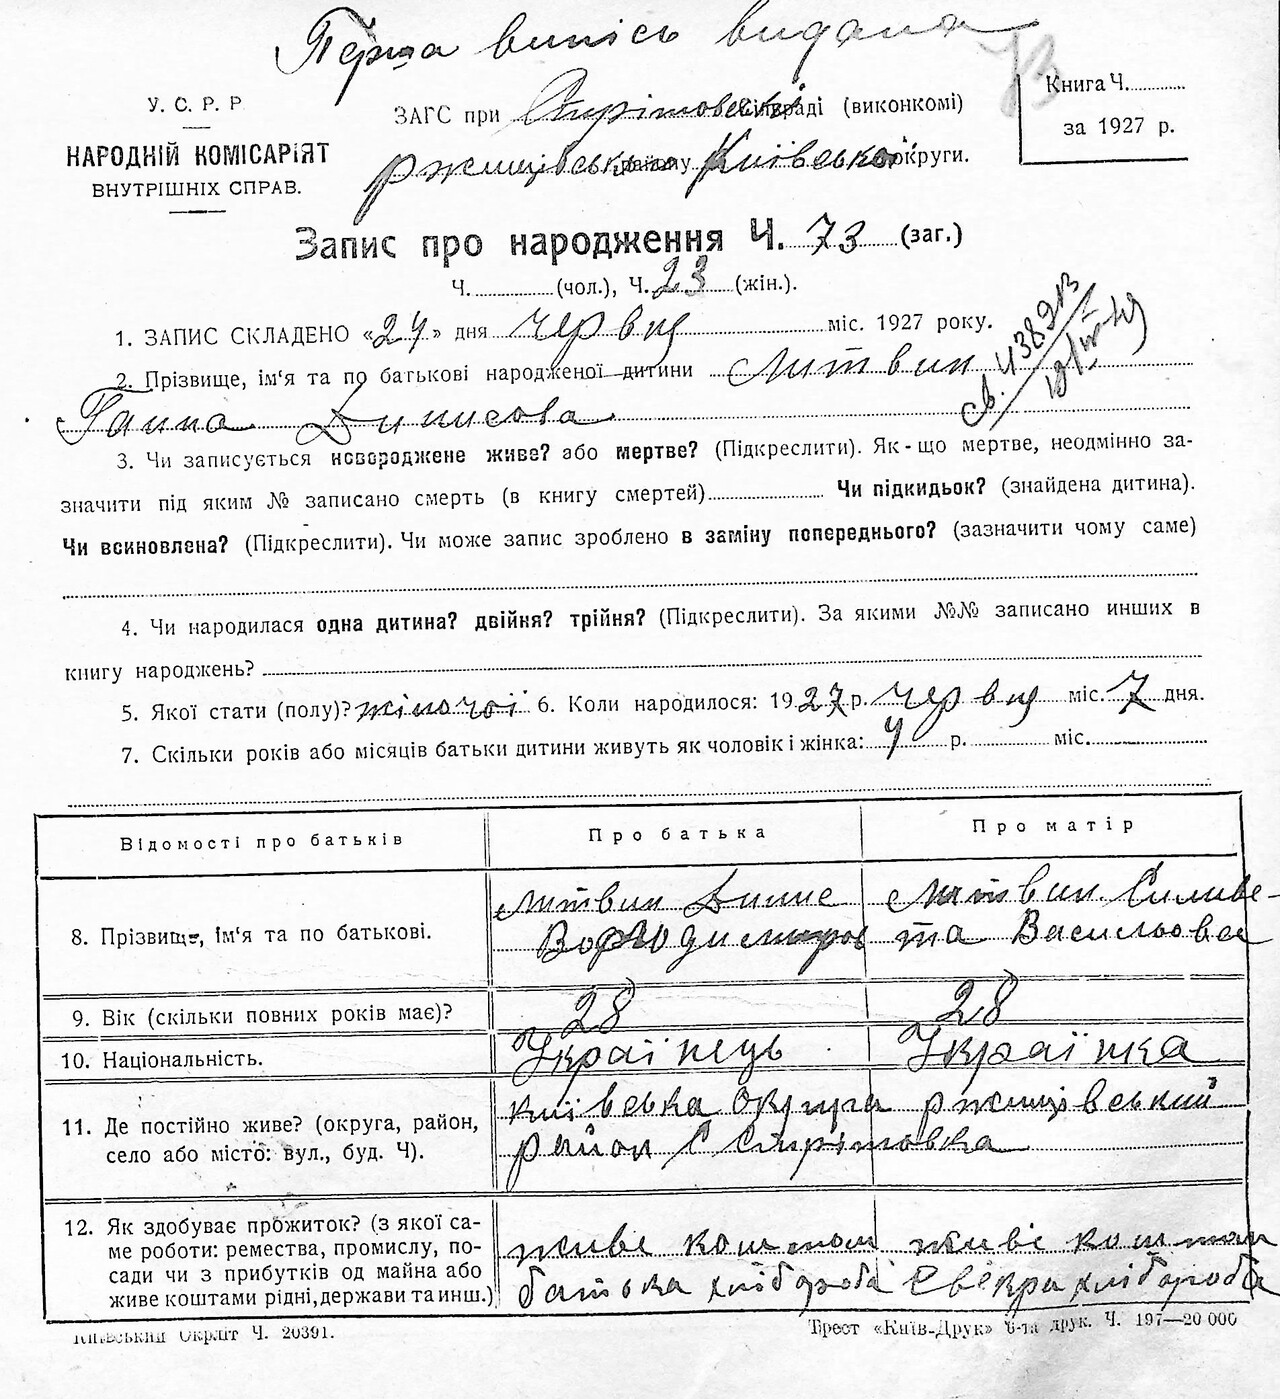 Перша випісь видана
73
У. С. Р. Р.
НАРОДНІЙ КОМІСАРІЯТ
ВНУТРІШНІХ СПРАВ.
ЗАГС при Стрітовській сільраді (виконкомі)
Ржищівського району Київської округи.
Книга Ч.
за 1927 р.
Запис про народження Ч. 73 (заг.)
Ч. (чол.), Ч. 23 (жін.).
1. ЗАПИС СКЛАДЕНО «24» дня червня міс. 1927 року.
2. Прізвище, ім'я та по батькові народженої дитини Литвин
Ганна Динисова
3. Чи записується новороджене живе? або мертве? (Підкреслити). Як-що мертве, неодмінно за-
значити під яким № записано смерть (в книгу смертей) Чи підкидьок? (знайдена дитина).
Чи всиновлена? (Підкреслити). Чи може запис зроблено в заміну попереднього? (зазначити чому саме)
4. Чи народилася одна дитина? двійня? трійня? (Підкреслити). За якими №№ записано инших в
книгу народжень?
5. Якої стати (полу)? жіночої 6. Коли народилося: 1927 р. червня міс. 7 дня.
7. Скільки років або місяців батьки дитини живуть як чоловік і жінка: 4 р. міс.
Відомості про батьків Про батька Про матір
8. Прізвище, ім'я та по батькові.
Литвин Динис Литвин Силиве-
Володимиров та Васильовна
9. Вік (скільки повних років має)? 28 28
10. Національність. Українець Українка
11. Де постійно живе? (округа, район,
село або місто: вул., буд. Ч).
київська округа ржищівський
район с Стрітовка
12. Як здобуває прожиток? (з якої са-
ме роботи: ремества, промислу, по-
сади чи з прибутків од майна або
живе коштами рідні, держави та инш.)
живе коштом живе коштом
батька хлібороба свекра хлібороба
Київський Окрліт Ч. 20391.
Трест «Київ-Друк» 6-та друк. Ч. 197—20 000